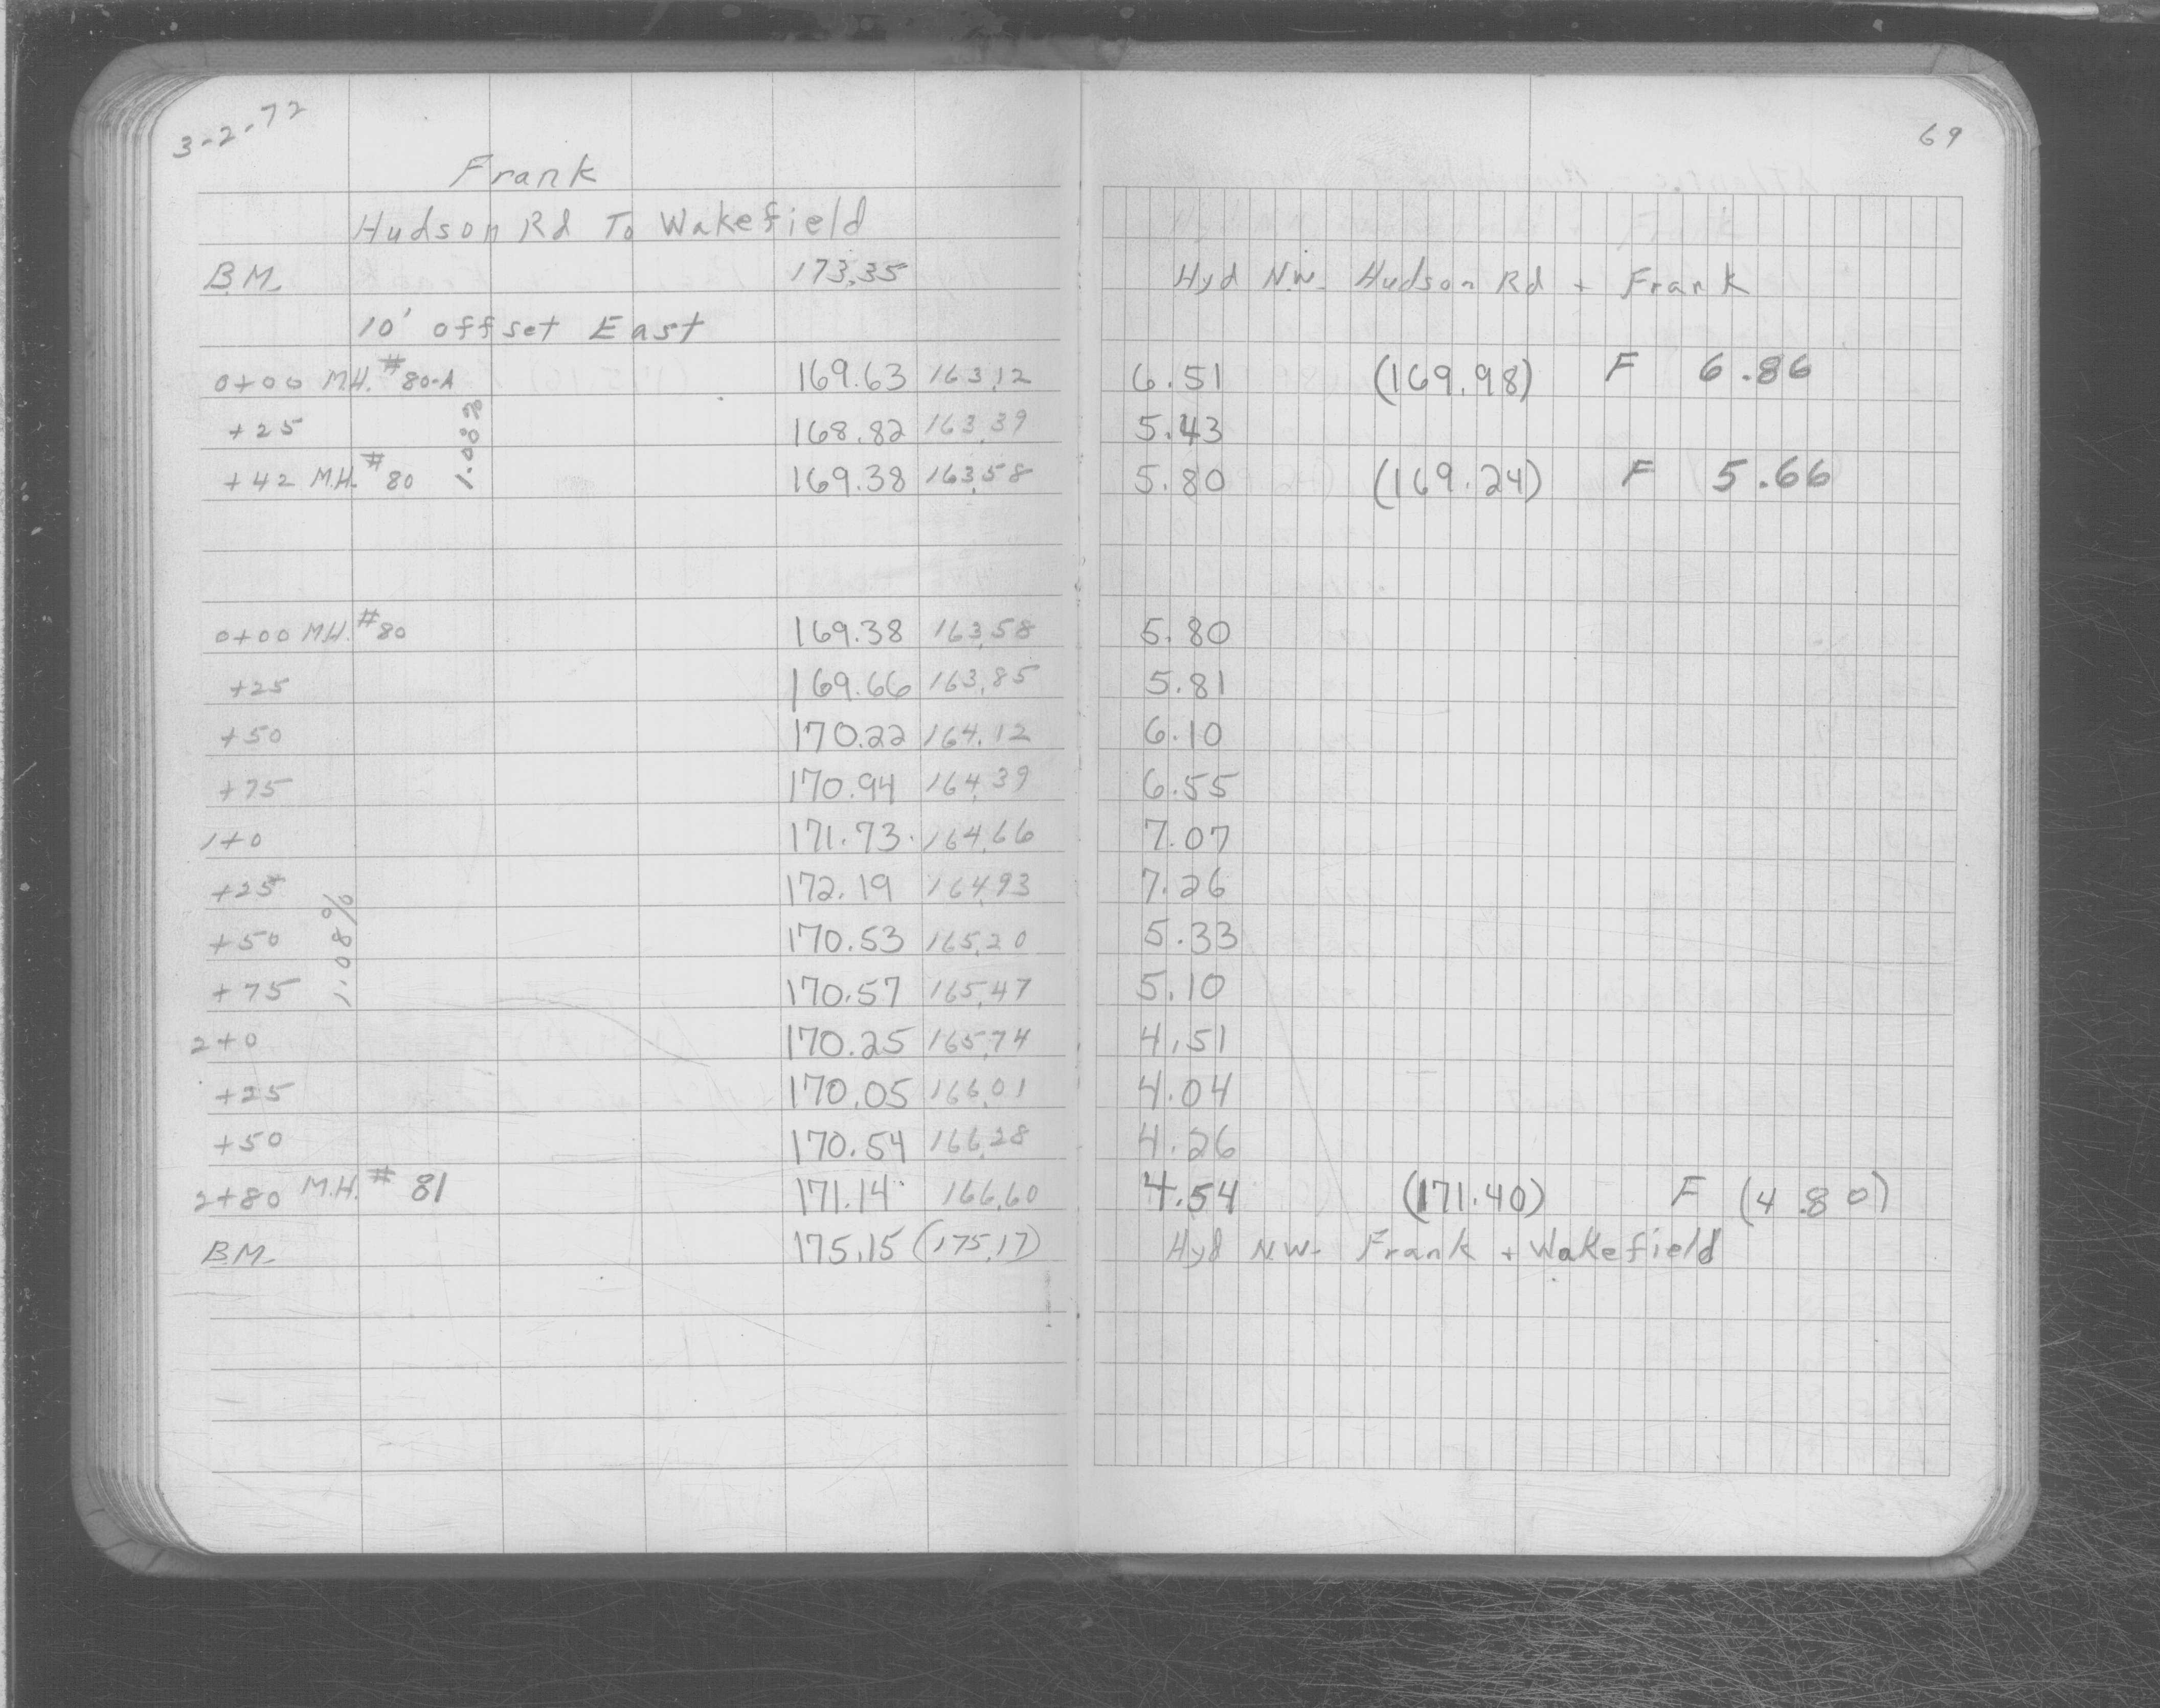 3-2-72
69
Frank
Hudson Rd To Wakefield
B.M. 173.35 Hyd N.W. Hudson Rd + Frank
10' offset East
0+00 M.H. #80-A 169.63 163.12 6.51 (169.98) F 6.86
+25 168.82 163.39 5.43
+42 M.H. #80 169.38 163.58 5.80 (169.24) F 5.66
0+00 M.H. #80 169.38 163.58 5.80
+25 169.66 163.85 5.81
+50 170.22 164.12 6.10
+75 170.94 164.39 6.55
1+0 171.73 164.66 7.07
+25 172.19 164.93 7.26
1.08%
+50 170.53 165.20 5.33
+75 170.57 165.47 5.10
2+0 170.25 165.74 4.51
+25 170.05 166.01 4.04
+50 170.54 166.28 4.26
2+80 M.H. #81 171.14 166.60 4.54 (171.40) F (4.80)
B.M. 175.15 (175.17) Hyd NW- Frank + Wakefield